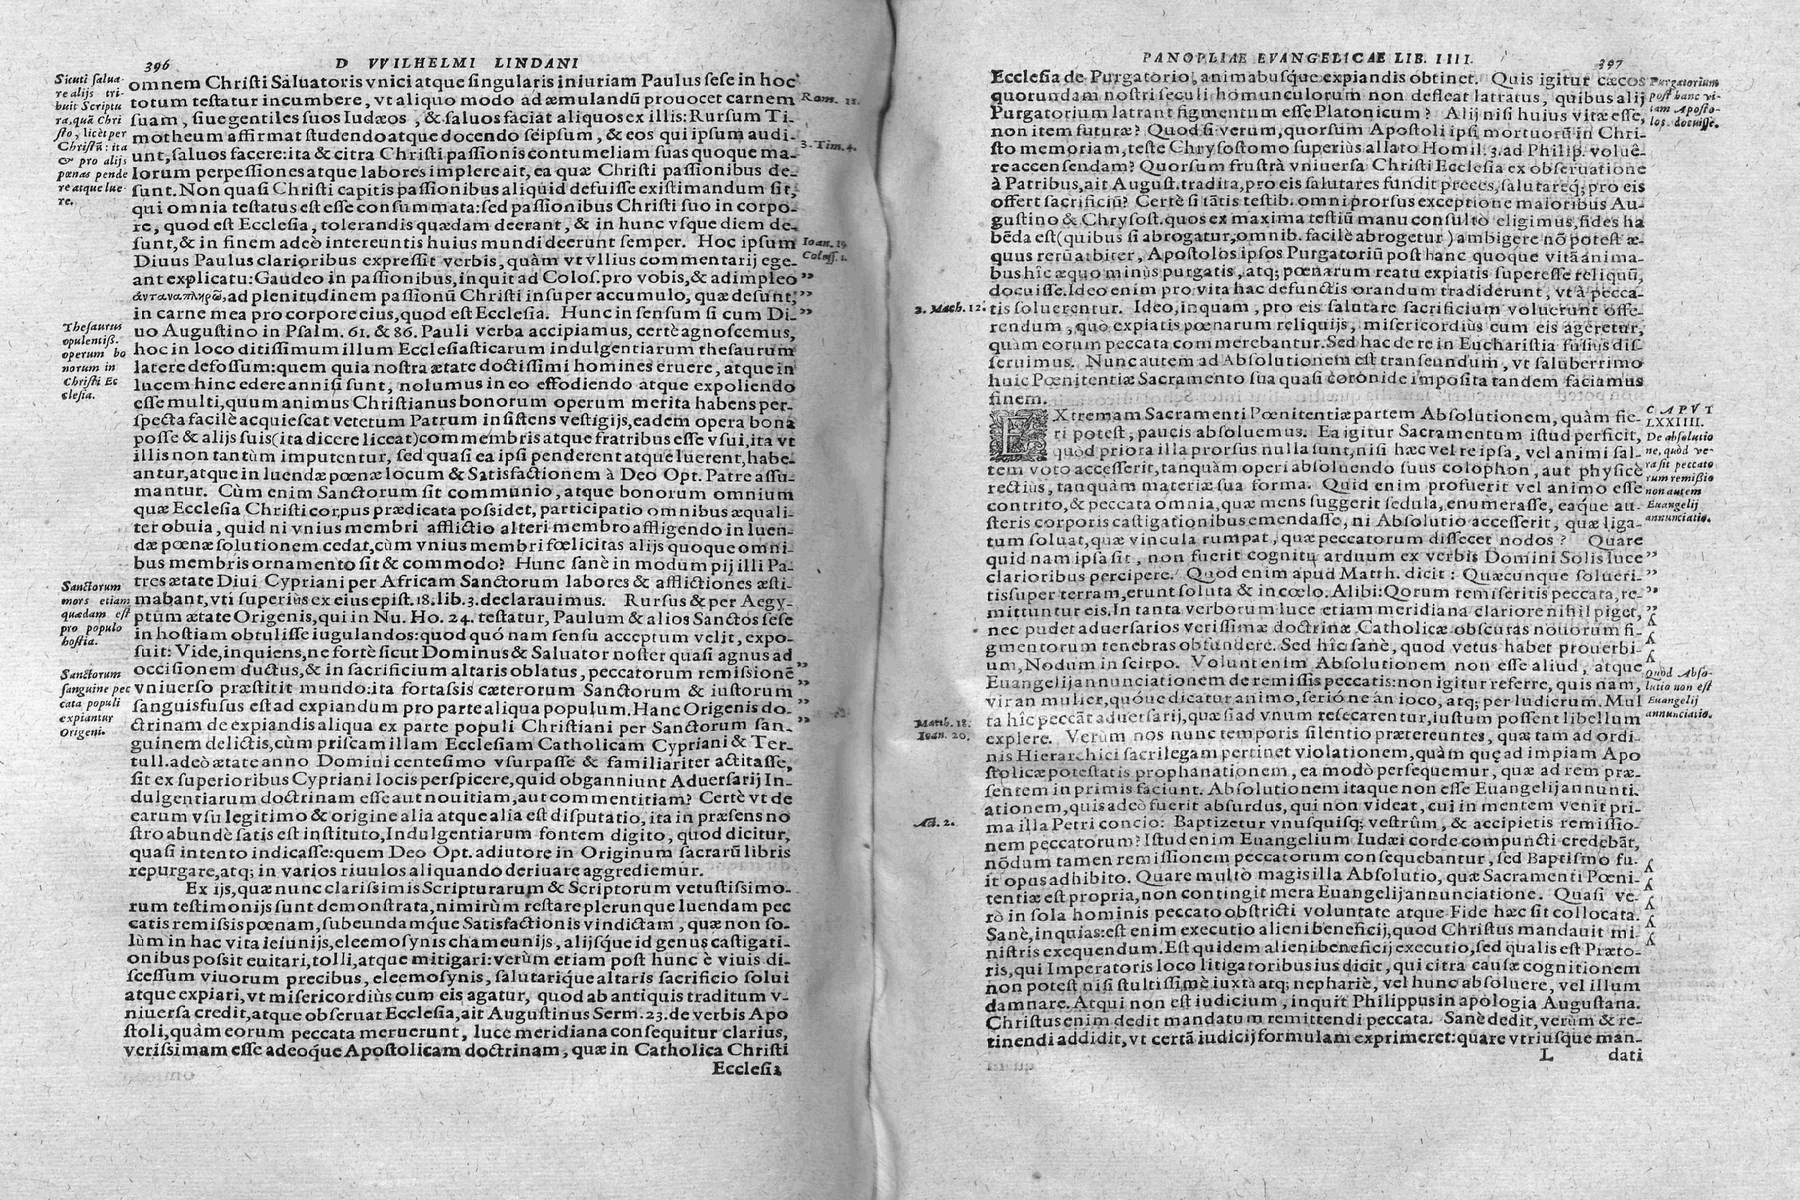 396
D VVILHELMI LINDANI
Sicuti salua-
re alijs tri-
buit Scriptu
ra, quā Chri
sto, licèt per
Christū: ita
& pro alijs
pœnas pende
re atque lue-
re.
omnem Christi Saluatoris vnici atque singularis iniuriam Paulus sese in hoc
totum testatur incumbere, vt aliquo modo ad æmulandū prouocet carnem
suam, siue gentiles suos Iudæos, & saluos faciat aliquos ex illis: Rursum Ti-
motheum affirmat studendo atque docendo seipsum, & eos qui ipsum audi-
unt, saluos facere: ita & citra Christi passionis contumeliam suas quoque ma-
lorum perpessiones atque labores implere ait, ea quæ Christi passionibus de-
sunt. Non quasi Christi capitis passionibus aliquid defuisse existimandum sit,
qui omnia testatus est esse consummata: sed passionibus Christi suo in corpo-
re, quod est Ecclesia, tolerandis quædam deerant, & in hunc vsque diem de-
sunt, & in finem adeò intereuntis huius mundi deerunt semper. Hoc ipsum
Diuus Paulus clarioribus expressit verbis, quàm vt vllius commentarij ege-
ant explicatu: Gaudeo in passionibus, inquit ad Colos. pro vobis, & adimpleo
ἀνταναπληρῶ, ad plenitudinem passionū Christi insuper accumulo, quæ desunt,
in carne mea pro corpore eius, quod est Ecclesia. Hunc in sensum si cum Di-
uo Augustino in Psalm. 61. & 86. Pauli verba accipiamus, certè agnoscemus,
hoc in loco ditissimum illum Ecclesiasticarum indulgentiarum thesaurum
latere defossum: quem quia nostra ætate doctissimi homines eruere, atque in
lucem hinc edere annisi sunt, nolumus in eo effodiendo atque expoliendo
esse multi, quum animus Christianus bonorum operum merita habens per-
specta facilè acquiescat veterum Patrum insistens vestigijs, eadem opera bona
posse & alijs suis (ita dicere liceat) commembris atque fratribus esse vsui, ita vt
illis non tantùm imputentur, sed quasi ea ipsi penderent atque luerent, habe-
antur, atque in luendæ pœnæ locum & Satisfactionem à Deo Opt. Patre assu-
mantur. Cùm enim Sanctorum sit communio, atque bonorum omnium
quæ Ecclesia Christi corpus prædicata possidet, participatio omnibus æquali-
ter obuia, quid ni vnius membri afflictio alteri membro affligendo in luen-
dæ pœnæ solutionem cedat, cùm vnius membri fœlicitas alijs quoque omni-
bus membris ornamento sit & commodo? Hunc sanè in modum pij illi Pa-
tres ætate Diui Cypriani per Africam Sanctorum labores & afflictiones æsti-
mabant, vti superiùs ex eius epist. 18. lib. 3. declarauimus. Rursus & per Aegy-
ptum ætate Origenis, qui in Nu. Ho. 24. testatur, Paulum & alios Sanctos sese
in hostiam obtulisse iugulandos: quod quó nam sensu acceptum velit, expo-
suit: Vide, inquiens, ne fortè sicut Dominus & Saluator noster quasi agnus ad
occisionem ductus, & in sacrificium altaris oblatus, peccatorum remissionē
vniuerso præstitit mundo: ita fortassis cæterorum Sanctorum & iustorum
sanguis fusus est ad expiandum pro parte aliqua populum. Hanc Origenis do-
ctrinam de expiandis aliqua ex parte populi Christiani per Sanctorum san-
guinem delictis, cùm priscam illam Ecclesiam Catholicam Cypriani & Ter-
tull. adeò ætate anno Domini centesimo vsurpasse & familiariter actitasse,
sit ex superioribus Cypriani locis perspicere, quid obganniunt Aduersarij In-
dulgentiarum doctrinam esse aut nouitiam, aut commentitiam? Certè vt de
earum vsu legitimo & origine alia atque alia est disputatio, ita in præsens no
stro abundè satis est instituto, Indulgentiarum fontem digito, quod dicitur,
quasi intento indicasse: quem Deo Opt. adiutore in Originum sacrarū libris
repurgare, atq; in varios riuulos aliquando deriuare aggrediemur.
Ex ijs, quæ nunc clarissimis Scripturarum & Scriptorum vetustissimo-
rum testimonijs sunt demonstrata, nimirùm restare plerunque luendam pec
catis remissis pœnam, subeundamq́ue Satisfactionis vindictam, quæ non so-
lùm in hac vita ieiunijs, eleemosynis chameunijs, alijsq́ue id genus castigati-
onibus possit euitari, tolli, atque mitigari: verùm etiam post hunc è viuis di-
scessum viuorum precibus, eleemosynis, salutariq́ue altaris sacrificio solui
atque expiari, vt misericordiùs cum eis agatur, quod ab antiquis traditum v-
niuersa credit, atque obseruat Ecclesia, ait Augustinus Serm. 23. de verbis Apo
stoli, quàm eorum peccata meruerunt, luce meridiana consequitur clarius,
verissimam esse adeoq́ue Apostolicam doctrinam, quæ in Catholica Christi
Ecclesia
Rom. 11.
Ioan. 19.
Coloss. 1.
Thesaurus
opulentiss.
operum bo
norum in
Christi Ec
clesia.
Sanctorum
mors etiam
quædam est
pro populo
hostia.
Sanctorum
sanguine pec
cata populi
expiantur
Origeni.
PANOPLIAE EVANGELICAE LIB. IIII.
397
Ecclesia de Purgatorio, animabusq́ue expiandis obtinet. Quis igitur cæcos
quorundam nostri seculi homunculorum non defleat latratus, quibus alij
Purgatorium latrant figmentum esse Platonicum? Alij nisi huius vitæ esse,
non item futuræ? Quod si verum, quorsum Apostoli ipsi mortuorū in Chri-
sto memoriam, teste Chrysostomo superiùs allato Homil. 3. ad Philip. voluê-
re accensendam? Quorsum frustrà vniuersa Christi Ecclesia ex obseruatione
à Patribus, ait August. tradita, pro eis salutares fundit preces, salutareq; pro eis
offert sacrificiū? Certè si tātis testib. omni prorsus exceptione maioribus Au-
gustino & Chrysost. quos ex maxima testiū manu consultò eligimus, fides ha
bēda est (quibus si abrogatur, omnib. facilè abrogetur) ambigere nō potest æ-
quus rerū arbiter, Apostolos ipsos Purgatoriū post hanc quoque vitā anima-
bus hîc æquo minùs purgatis, atq; pœnarum reatu expiatis superesse reliquū,
docuisse. Ideo enim pro vita hac defunctis orandum tradiderunt, vt à pecca-
tis soluerentur. Ideo, inquam, pro eis salutare sacrificium voluerunt offe-
rendum, quo expiatis pœnarum reliquijs, misericordiùs cum eis ageretur,
quàm eorum peccata commerebantur. Sed hac de re in Eucharistia fusiùs dis-
seruimus. Nunc autem ad Absolutionem est transeundum, vt saluberrimo
huic Pœnitentiæ Sacramento sua quasi coronide imposita tandem faciamus
finem.
EXtremam Sacramenti Pœnitentiæ partem Absolutionem, quàm fie-
ri potest, paucis absoluemus. Ea igitur Sacramentum istud perficit,
quod priora illa prorsus nulla sunt, nisi hæc vel re ipsa, vel animi sal-
tem voto accesserit, tanquàm operi absoluendo suus colophon, aut physicè
rectiùs, tanquàm materiæ sua forma. Quid enim profuerit vel animo esse
contrito, & peccata omnia, quæ mens suggerit sedula, enumerasse, eaque au-
steris corporis castigationibus emendasse, ni Absolutio accesserit, quæ liga-
tum soluat, quæ vincula rumpat, quæ peccatorum dissecet nodos? Quare
quid nam ipsa sit, non fuerit cognitu arduum ex verbis Domini Solis luce
clarioribus percipere. Quod enim apud Matth. dicit: Quæcunque solueri-
tis super terram, erunt soluta & in cœlo. Alibi: Qorum remiseritis peccata, re-
mittuntur eis. In tanta verborum luce etiam meridiana clariore nihil piget,
nec pudet aduersarios verissimæ doctrinæ Catholicæ obscuras nouorum fi-
gmentorum tenebras obtundere. Sed hîc sanè, quod vetus habet prouerbi-
um, Nodum in scirpo. Volunt enim Absolutionem non esse aliud, atque
Euangelij annunciationem de remissis peccatis: non igitur referre, quis nam,
vir an mulier, quóue dicatur animo, serió ne án ioco, atq; per ludicrum. Mul
ta hîc peccāt aduersarij, quæ si ad vnum resecarentur, iustum possent libellum
explere. Verùm nos nunc temporis silentio prætereuntes, quæ tam ad ordi-
nis Hierarchici sacrilegam pertinet violationem, quàm quę ad impiam Apo
stolicæ potestatis prophanationem, ea modò persequemur, quæ ad rem præ-
sentem in primis faciunt. Absolutionem itaque non esse Euangelij annunti-
ationem, quis adeò fuerit absurdus, qui non videat, cui in mentem venit pri-
ma illa Petri concio: Baptizetur vnusquisq; vestrûm, & accipietis remissio-
nem peccatorum? Istud enim Euangelium Iudæi corde compuncti credebāt,
nōdum tamen remissionem peccatorum consequebantur, sed Baptismo fu-
it opus adhibito. Quare multò magis illa Absolutio, quæ Sacramenti Pœni-
tentiæ est propria, non contingit mera Euangelij annunciatione. Quasi ve-
rò in sola hominis peccato obstricti voluntate atque Fide hæc sit collocata.
Sanè, inquias: est enim executio alieni beneficij, quod Christus mandauit mi-
nistris exequendum. Est quidem alieni beneficij executio, sed qualis est Præto-
ris, qui Imperatoris loco litigatoribus ius dicit, qui citra causæ cognitionem
non potest nisi stultissimè iuxtà atq; nephariè, vel hunc absoluere, vel illum
damnare. Atqui non est iudicium, inquit Philippus in apologia Augustana.
Christus enim dedit mandatum remittendi peccata. Sanè dedit, verùm & re-
tinendi addidit, vt certā iudicij formulam exprimeret: quare vtriusque man-
L dati
Purgatorium
post hanc vi-
tam Aposto-
los docuisse.
2. Mach. 12.
CAPVT
LXXIIII.
De absolutio
ne, quòd ve-
ra sit peccato
rum remissio
non autem
Euangelij
annunciatio.
Quòd Abso-
lutio non est
Euangelij
annunciatio.
Matth. 18.
Ioan. 20.
Act. 2.